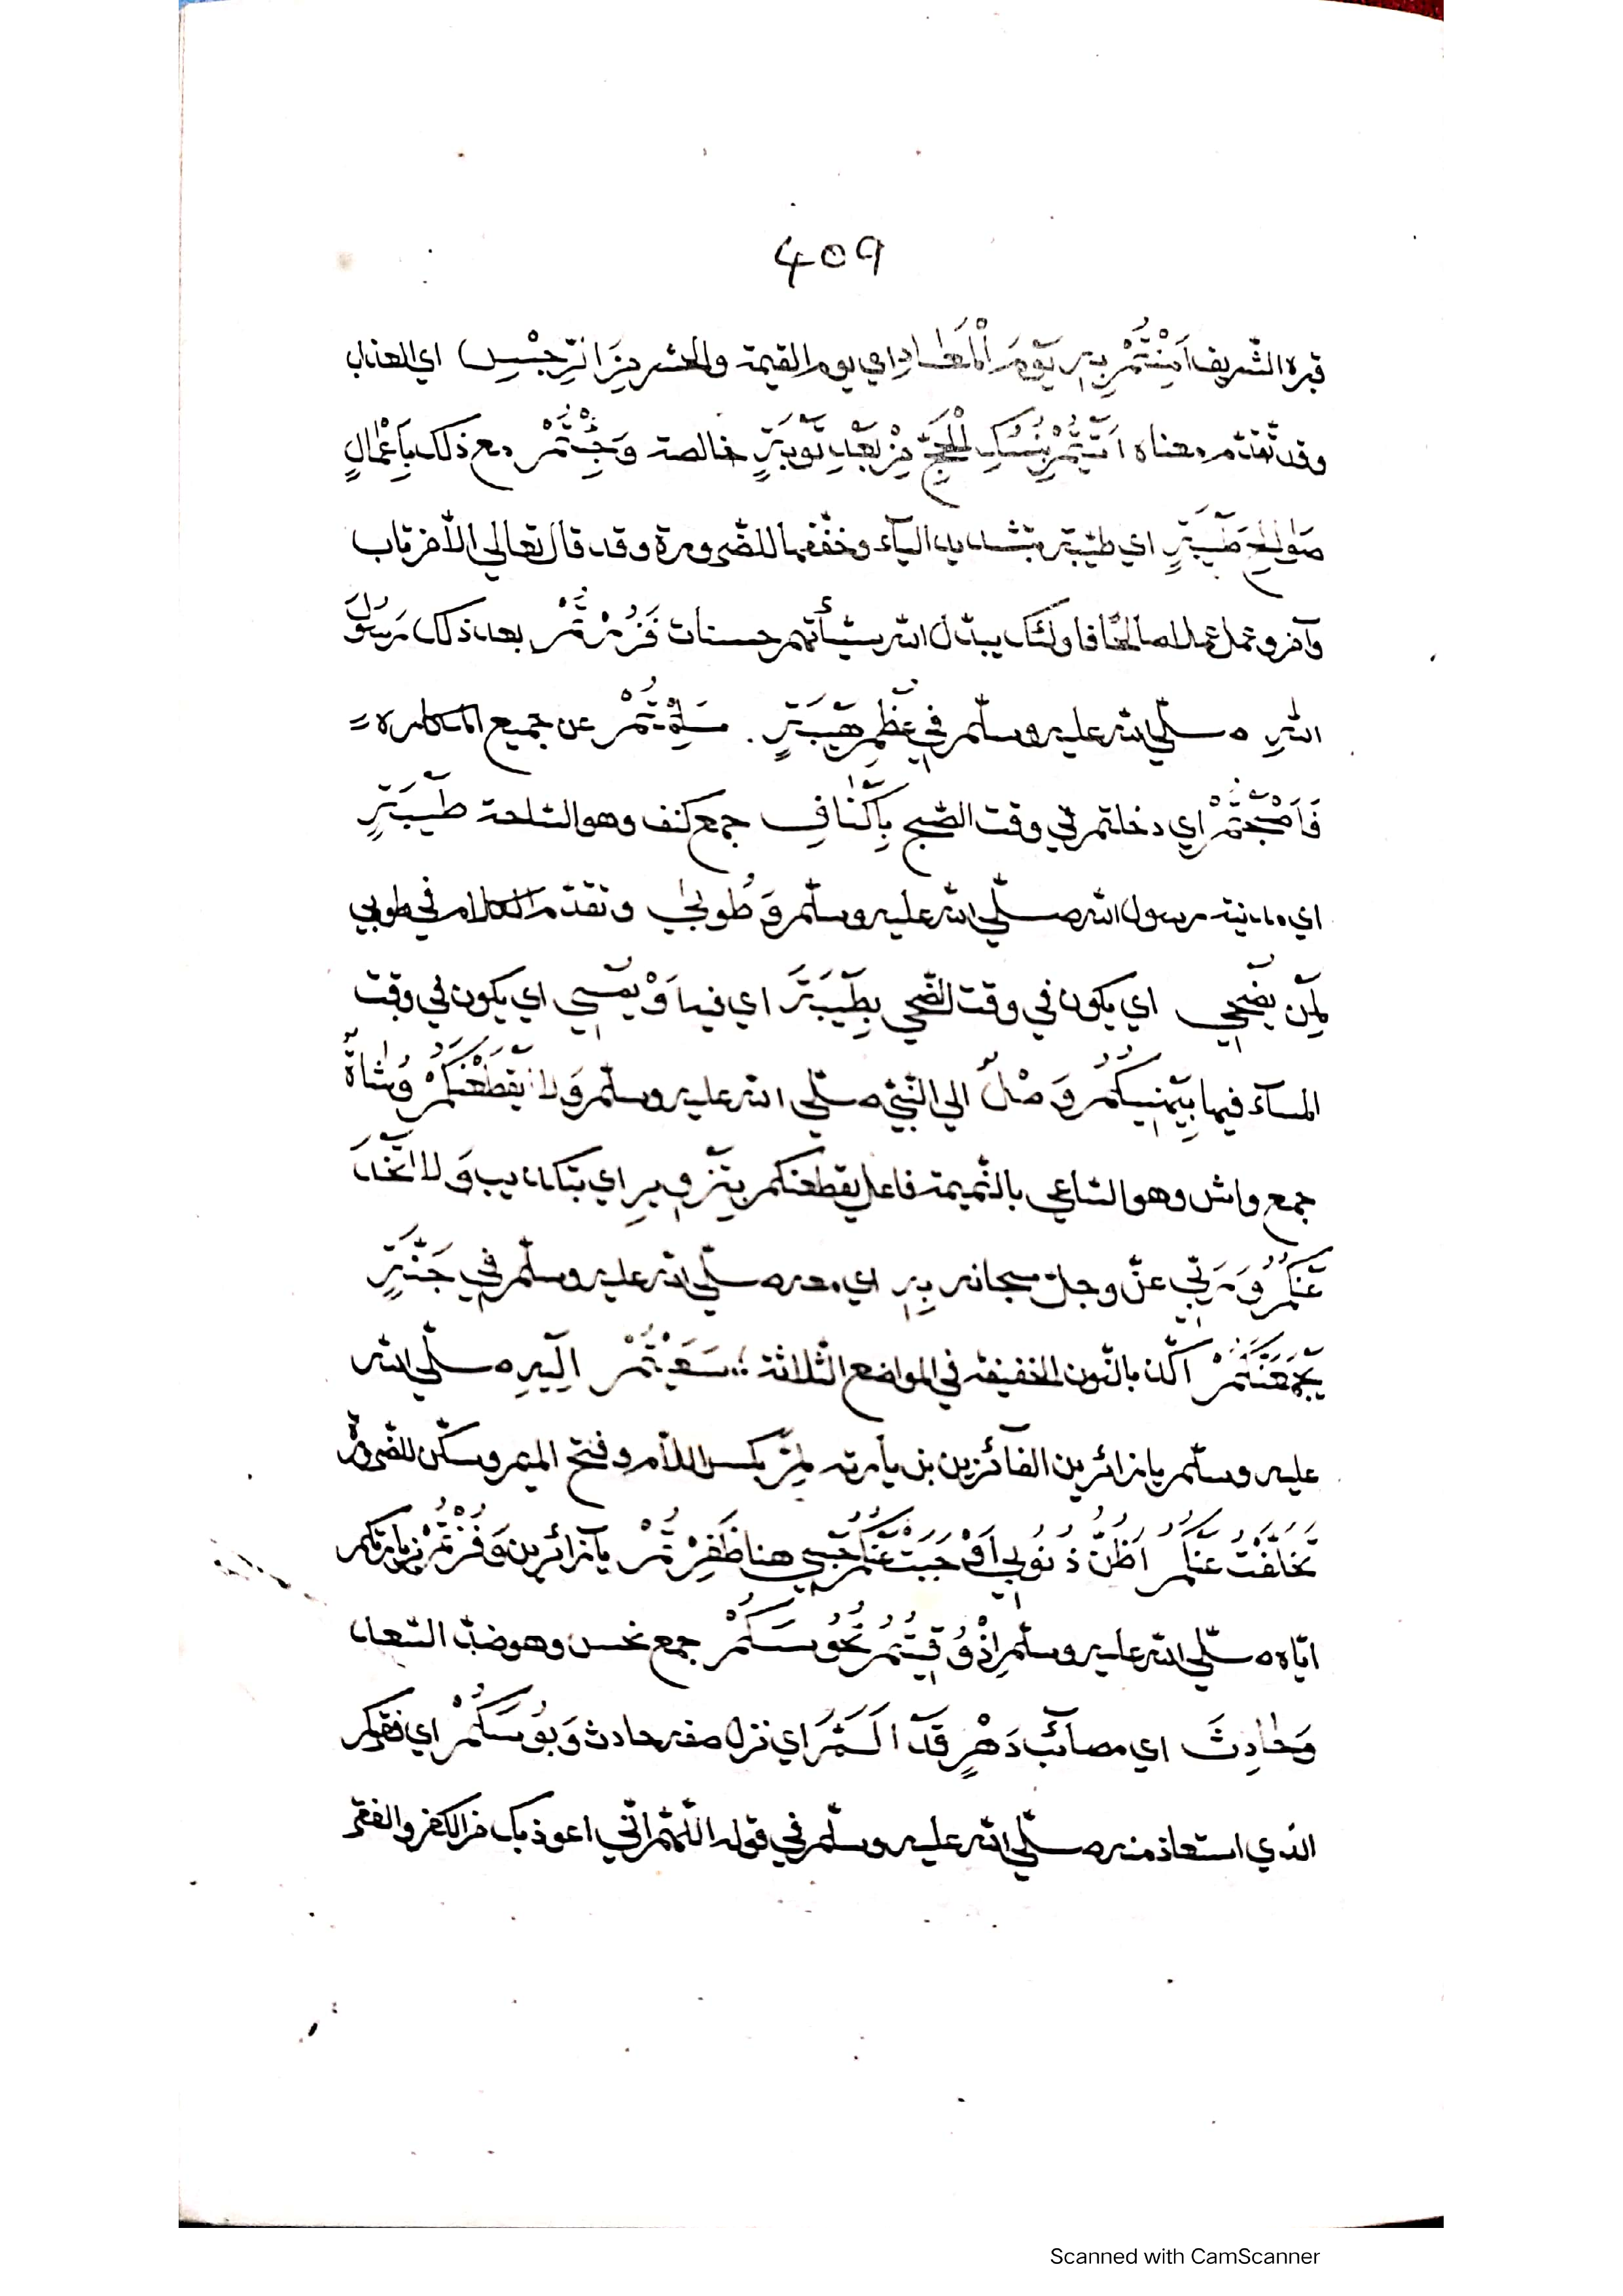 409
قبره الشّريف اَمِنْتُمْ بِهِ يَوْمَ الْمَعَادِ اي يوم القيمة والحشر مِنَ الرِّجْسِ اي العذاب
وقد تقدّم معناه اَتَيْتُمْ بِنُسْكِ الْحَجِّ مِنْ بَعْدِ تَوْبَةٍ خالصة وَجِئْتُمْ مع ذلك بِاَعْمَالٍ
صَوَالِحَ طَيْبَةٍ اي طيّبة بتشديد اليآء وخفّفها للضّرورة وقد قال تعالي الّا من تاب
وآمن وعمل عملا صالحًا فاولئك يبدّل الله سيّأتهم حسنات فَزُرْتُمْ بعد ذلك رَسُولَ
اللهِ صلّي الله عليه وسلّم فِي عِظْمِ هَيْبَةٍ . سَلِمْتُمْ عن جميع المكاره =
فَاَصْبَحْتُمْ اي دخلتم في وقت الصّبح بِاَكْنَافِ جمع كنف وهو السّاحة طَيْبَةٍ
اي مدينة رسول الله صلّي الله عليه وسلّم وَطُوبَي وتقدّم الكلام في طوبي
لِمَنْ يُضْحِي اي يكون في وقت الضّحي بِطَيْبَةَ اي فيها وَيُمْسِي اي يكون في وقت
المسآء فيها بِيَمْنِيكُمُ وَصْلٌ الي النّبيّ صلّي الله عليه وسلّم وَلَا يَقْطَعَنْكُمْ وُشَاةٌ
جمع واش وهو السّاعي بالنّميمة فاعل يقطعنكم بِتَزْوِيرِ اي بتكاذيب وَلَا
عَنْكُمُ وَرَبِّي عزّ وجلّ سبحانه بِهِ اي معه صلّي الله عليه وسلّم فِي جَنَّةٍ
يَجْمَعَنْكُمْ اكّد بالنّون الخفيفة في المواضع الثّلاثة ؛ سَعَيْتُمْ اِلَيْهِ صلّي الله
عليه وسلّم يا زائرين الفآئزين بزيارته لِمْ بكسر اللّام وفتح الميم وسكّن للضّرورة
تَخَلَّفْتُ عَنْكُمُ اَظُنُّ ذُنُوبِي اَوْجَبَتْ عَنْكُمُ حَبْسِي هنا ظَفِرْتُمْ يا زائرين وَفُزْتُمْ بزيارتكم
ايّاه صلّي الله عليه وسلّم اِذْ وُقِيتُمُ نُحُوسَكُمْ جمع نحس وهو ضدّ السّعد
وَحَادِثَ اي مصآئب دَهْرٍ قَدْ اَلَمَّ اي نزل صفة حادث وَبُوسَكُمْ اي فقركم
الّذي استعاذ منه صلّي الله عليه وسلّم في قوله اللّهمّ انّي اعوذ بك من الكفر والفقر
Scanned with CamScanner